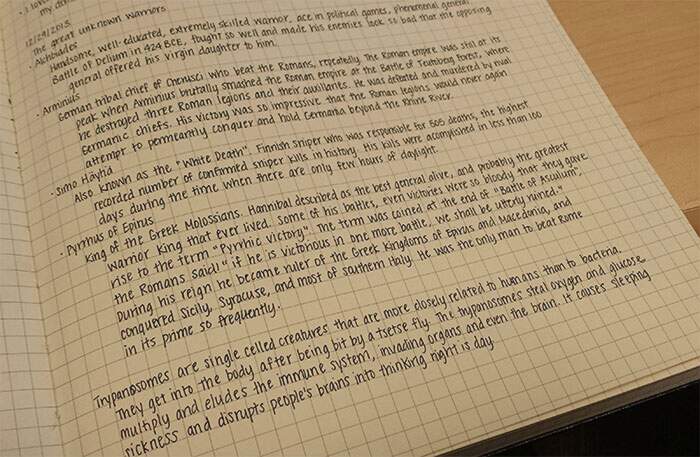 · I love
my da
12/29/2015.
The great unknown warriors
· Alcibiades
Handsome, well-educated, extremely skilled warrior, ace in political games, phenomenal general
Battle of Delium in 424 BCE, fought so well and made his enemies look so bad that the opposing
general offered his virgin daughter to him.
· Arminius
German tribal chief of Cherusci who beat the Romans, repeatedly. The Roman empire was still at its
peak when Arminius brutally smashed the Roman empire at the Battle of Teutoberg forest, where
He destroyed three Roman legions and their auxiliaries. He was defeated and murdered by rival
Germanic chiefs. His victory was so impressive that the Roman legions would never again
attempt to permeantly conquer and hold Germania beyond the Rhine River.
· Simo Häyhä
Also known as the "White Death". Finnish sniper who was responsible for 505 deaths, the highest
recorded number of confirmed sniper kills in history. His kills were acomplished in less than 100
days during the time when there are only few hours of daylight.
· Pyrrhus of Epirus
King of the Greek Molossians. Hannibal described as the best general alive, and probably the greatest
warrior king that ever lived. Some of his battles, even victories were so bloody that they gave
rise to the term "Pyrrhic victory". The term was coined at the end of "Battle of Asculum",
the Romans said: "if he is victorious in one more battle, we shall be utterly ruined."
During his reign he became ruler of the Greek Kingdoms of Epirus and Macedonia, and
conquered Sicily, Syracuse, and most of southern Italy. He was the only man to beat Rome
in its prime so frequently.
Trypanosomes are single celled creatures that are more closely related to humans than to bacteria.
They get into the body after being bit by a tsetse fly. The tryponisomes steal oxygen and glucose
multiply and eludes the immune system, invading organs and even the brain. It causes sleeping
sickness and disrupts people's brains into thinking night is day.